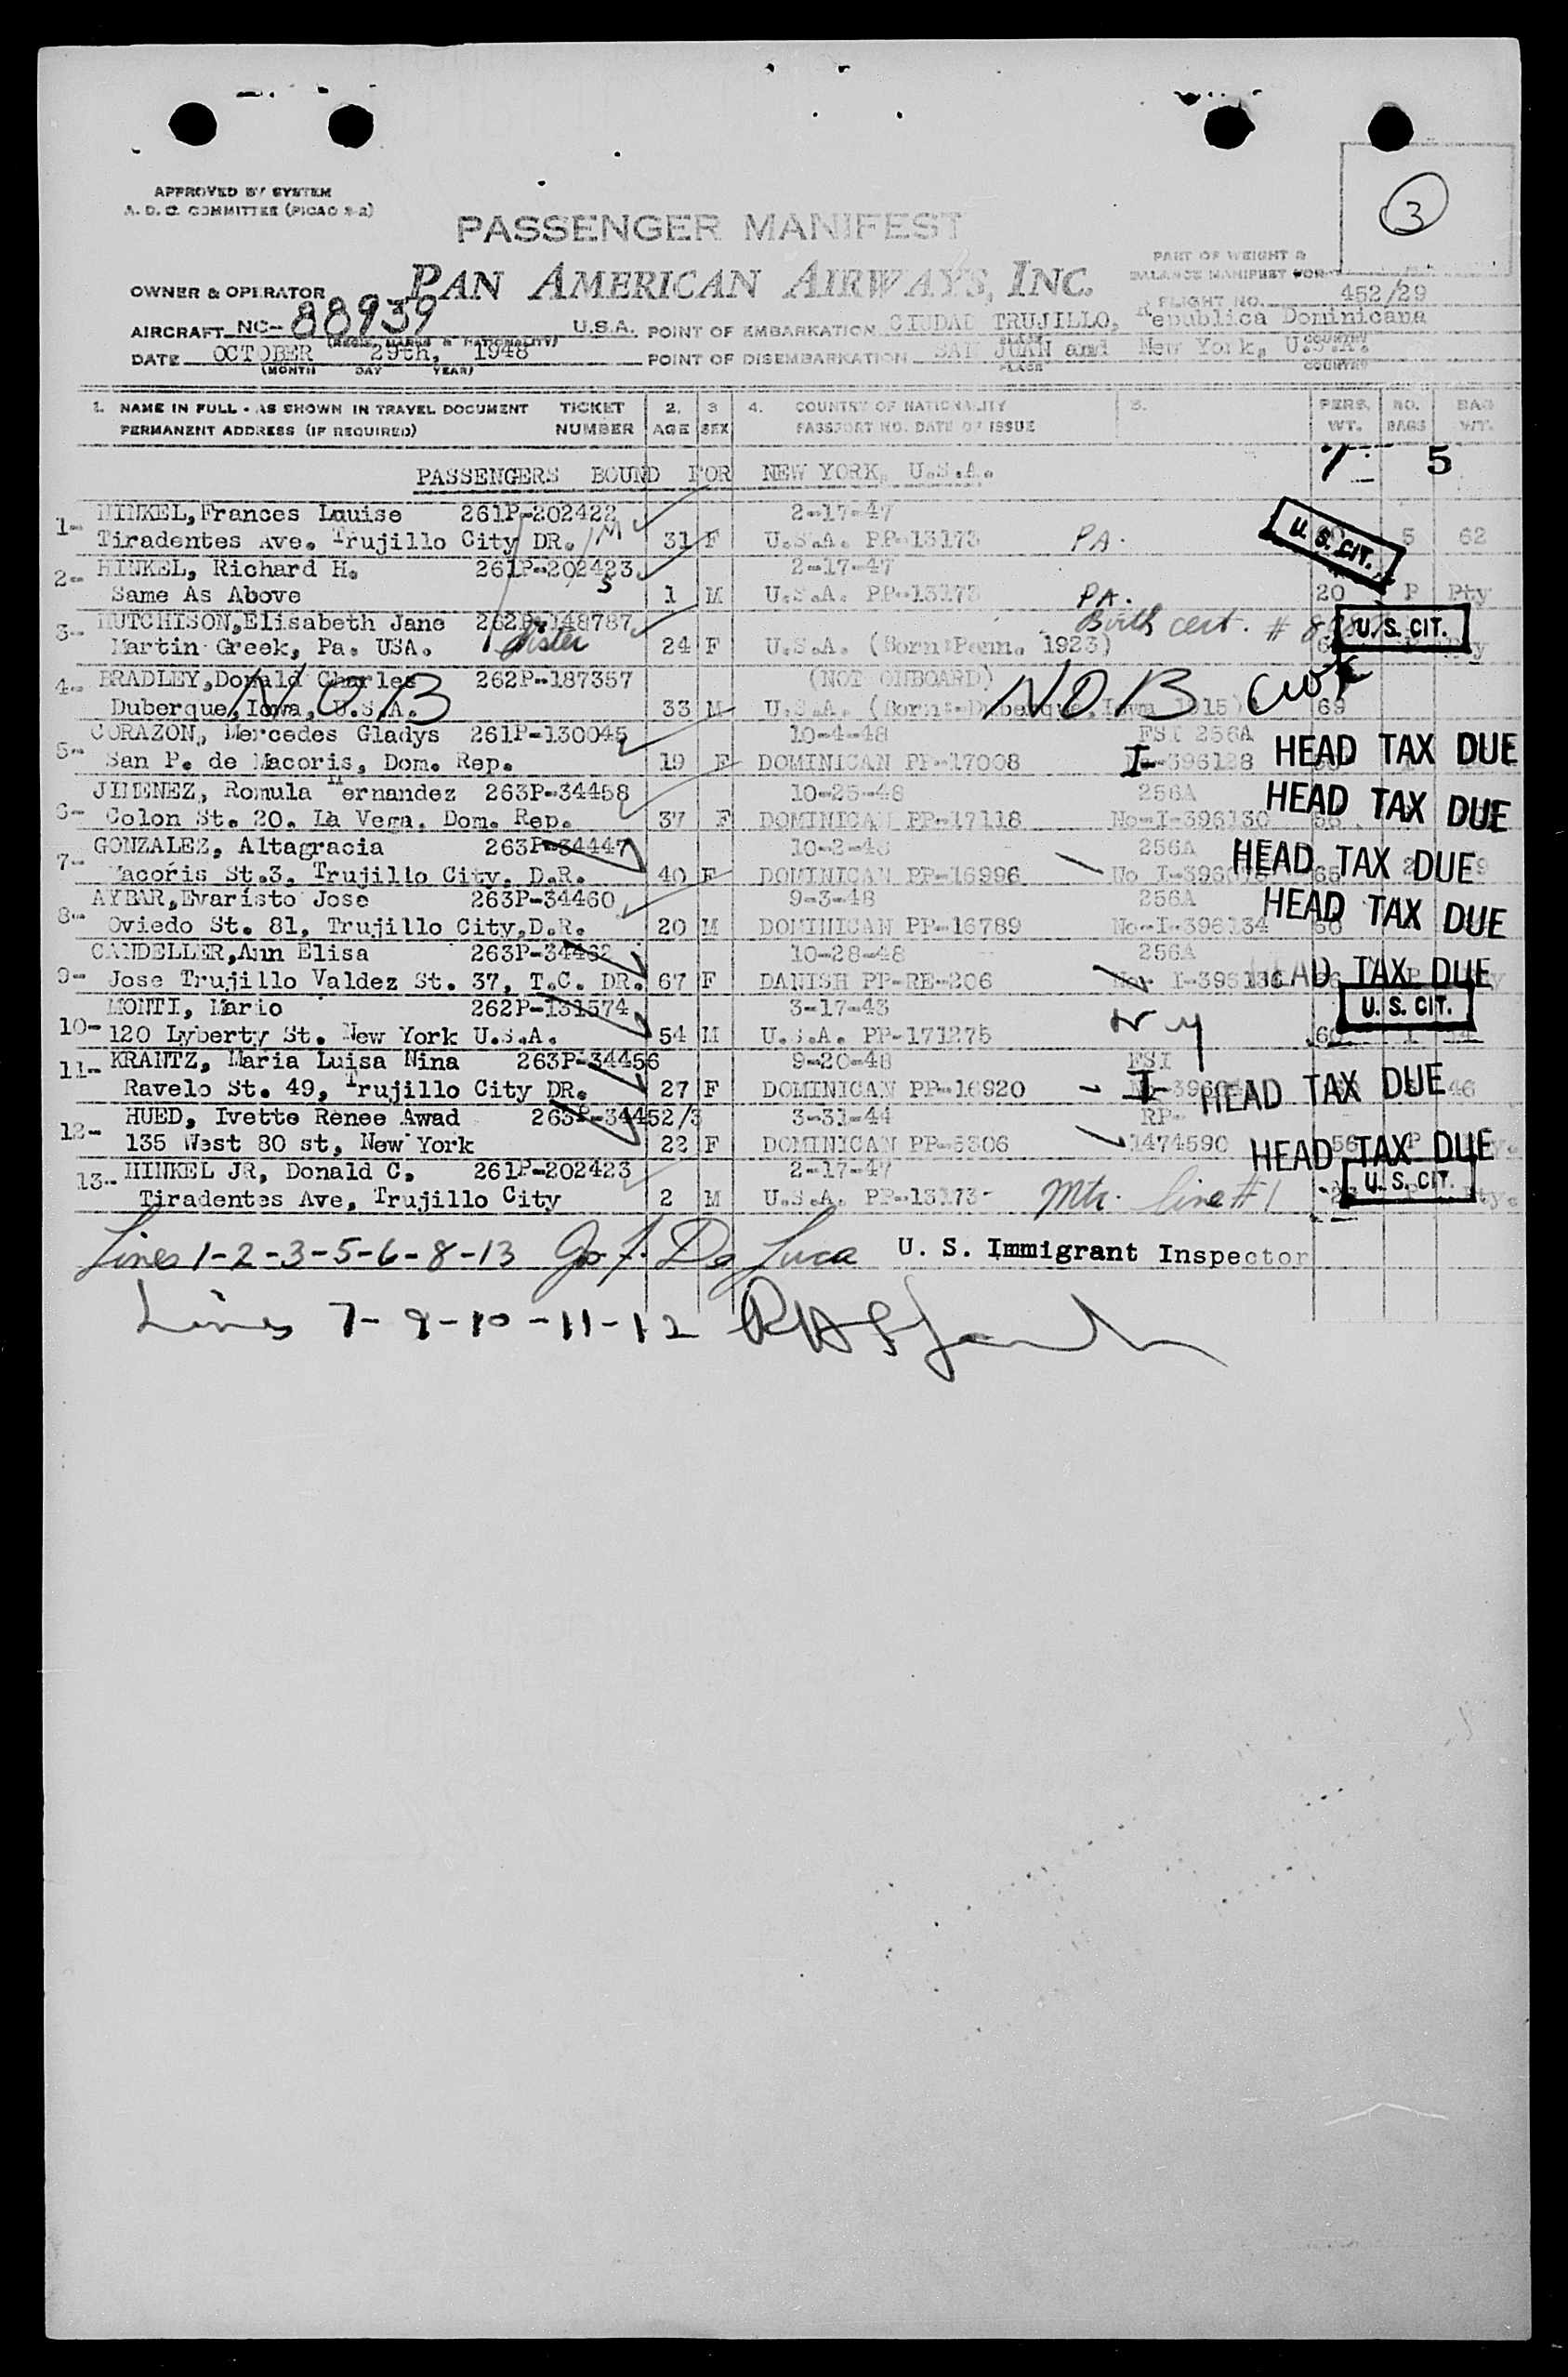 3
APPROVED BY SYSTEM
A. D. C. COMMITTEE (PICAO S-2)
PASSENGER MANIFEST
PART OF WEIGHT &
BALANCE MANIFEST FOR
OWNER & OPERATOR PAN AMERICAN AIRWAYS, INC.
FLIGHT NO. 452/29
AIRCRAFT NC- 88939 U.S.A. POINT OF EMBARKATION CIUDAD TRUJILLO, Republica Dominicana
(REGIS. MARKS & NATIONALITY) PLACE COUNTRY
DATE OCTOBER 29th, 1948 POINT OF DISEMBARKATION SAN JUAN and New York, U.S.A.
(MONTH DAY YEAR) PLACE COUNTRY
1. NAME IN FULL - AS SHOWN IN TRAVEL DOCUMENT TICKET 2. 3 4. COUNTRY OF NATIONALITY 5. PERS. NO. BAG
PERMANENT ADDRESS (IF REQUIRED) NUMBER AGE SEX PASSPORT NO. DATE OF ISSUE WT. BAGS WT.
7 5
PASSENGERS BOUND FOR NEW YORK, U.S.A.
HINKEL, Frances Louise 261P-202422 2-17-47
1- Tiradentes Ave. Trujillo City DR. M 31 F U.S.A. PP-13173 PA. U. S. CIT. 5 62
HINKEL, Richard H. 261P-202423 2-17-47
2- Same As Above S 1 M U.S.A. PP-13173 PA. 20 P Pty
HUTCHISON, Elisabeth Jane 262P-148787 Birth cert. #
3- Martin Creek, Pa. USA. Sister 24 F U.S.A. (Born:Penn. 1923) U. S. CIT.
BRADLEY, Donald Charles 262P-187357 (NOT ONBOARD)
4- Duberque, Iowa, U.S.A. NOB 33 M U.S.A. (Born:-Duberque, Iowa 1915) NOB 69
CORAZON, Mercedes Gladys 261P-130045 10-4-48 FSI 256A
5- San P. de Macoris, Dom. Rep. 19 F DOMINICAN PP-17008 I-396128 HEAD TAX DUE
JIMENEZ, Romula Hernandez 263P-34458 10-25-48 256A
6- Colon St. 20. La Vega. Dom. Rep. 37 F DOMINICAN PP-17118 No-I-396130 HEAD TAX DUE
GONZALEZ, Altagracia 263P-34447 10-2-48 256A
7- Macoris St.3, Trujillo City. D.R. 40 F DOMINICAN PP-16996 No I- 65 HEAD TAX DUE
AYBAR, Evaristo Jose 263P-34460 9-3-48 256A
8- Oviedo St. 81, Trujillo City, D.R. 20 M DOMINICAN PP-16789 No-I-396134 60 HEAD TAX DUE
CANDELLER, Ann Elisa 263P-34462 10-28-48 256A
9- Jose Trujillo Valdez St. 37, T.C. DR. 67 F DANISH PP-RE-206 No. I-396136 HEAD TAX DUE
MONTI, Mario 262P-131574 3-17-43
10- 120 Lyberty St. New York U.S.A. 54 M U.S.A. PP-171275 N Y 60 1 U. S. CIT.
11- KRANTZ, Maria Luisa Nina 263P-34456 9-20-48 FSI
Ravelo St. 49, Trujillo City DR. 27 F DOMINICAN PP-16920 I- HEAD TAX DUE 46
HUED, Ivette Renee Awad 263P-34452/3 3-31-44 RP-
12- 135 West 80 st, New York 22 F DOMINICAN PP-5306 1474590 56 P HEAD TAX DUE
13- HINKEL JR, Donald C. 261P-202423 2-17-47
Tiradentes Ave, Trujillo City 2 M U.S.A. PP-13173- Mtr. line #1 U. S. CIT. Pty.
Lines 1-2-3-5-6-8-13 De Luca U. S. Immigrant Inspector
Lines 7-9-10-11-12